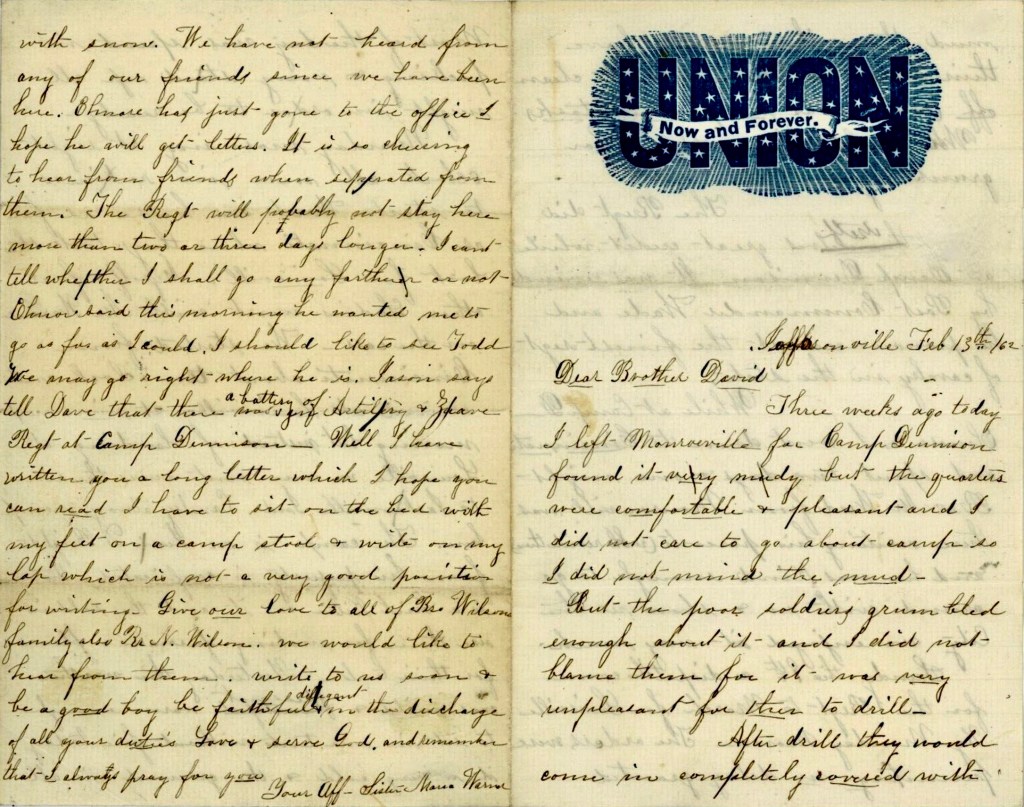 UNION
Now and Forever.
Jeffersonville Feb 13th /62
Dear Brother David
Three weeks ago today
I left Monroeville for Camp Dennison
found it very mudy but the quarters
were comfortable & pleasant and I
did not care to go about camp so
I did not mind the mud-
But the poor soldiers grumbled
enough about it- and I did not
blame them for it- was very
unpleasant for them to drill-
After drill they would
come in completely covered with
with snow. We have not heard from
any of our friends since we have been
here. Elmore has just gone to the office I
hope he will get letters. It is so cheering
to hear from friends when seperated from
them. The Regt will probably not stay here
more than two or three days longer. I cant
tell whether I shall go any farther or not-
said this morning he wanted me to
go as far as I could. I should like to see Todd
We may go right where he is. Jason says
tell Dave that there was a battery of Artillery &
Regt at Camp Dennison- Well I have
written you a long letter which I hope you
can read I have to sit on the bed with
my feet on a camp stool & write on my
lap which is not a very good position
for writing- Give our love to all of Bro Wilson
family also N. Wilson. we would like to
hear from them. write to us soon &
be a good boy be faithful & diligent in the discharge
of all your duties Love & serve God. and remember
that I always pray for you
Your Aff- Sister Maria